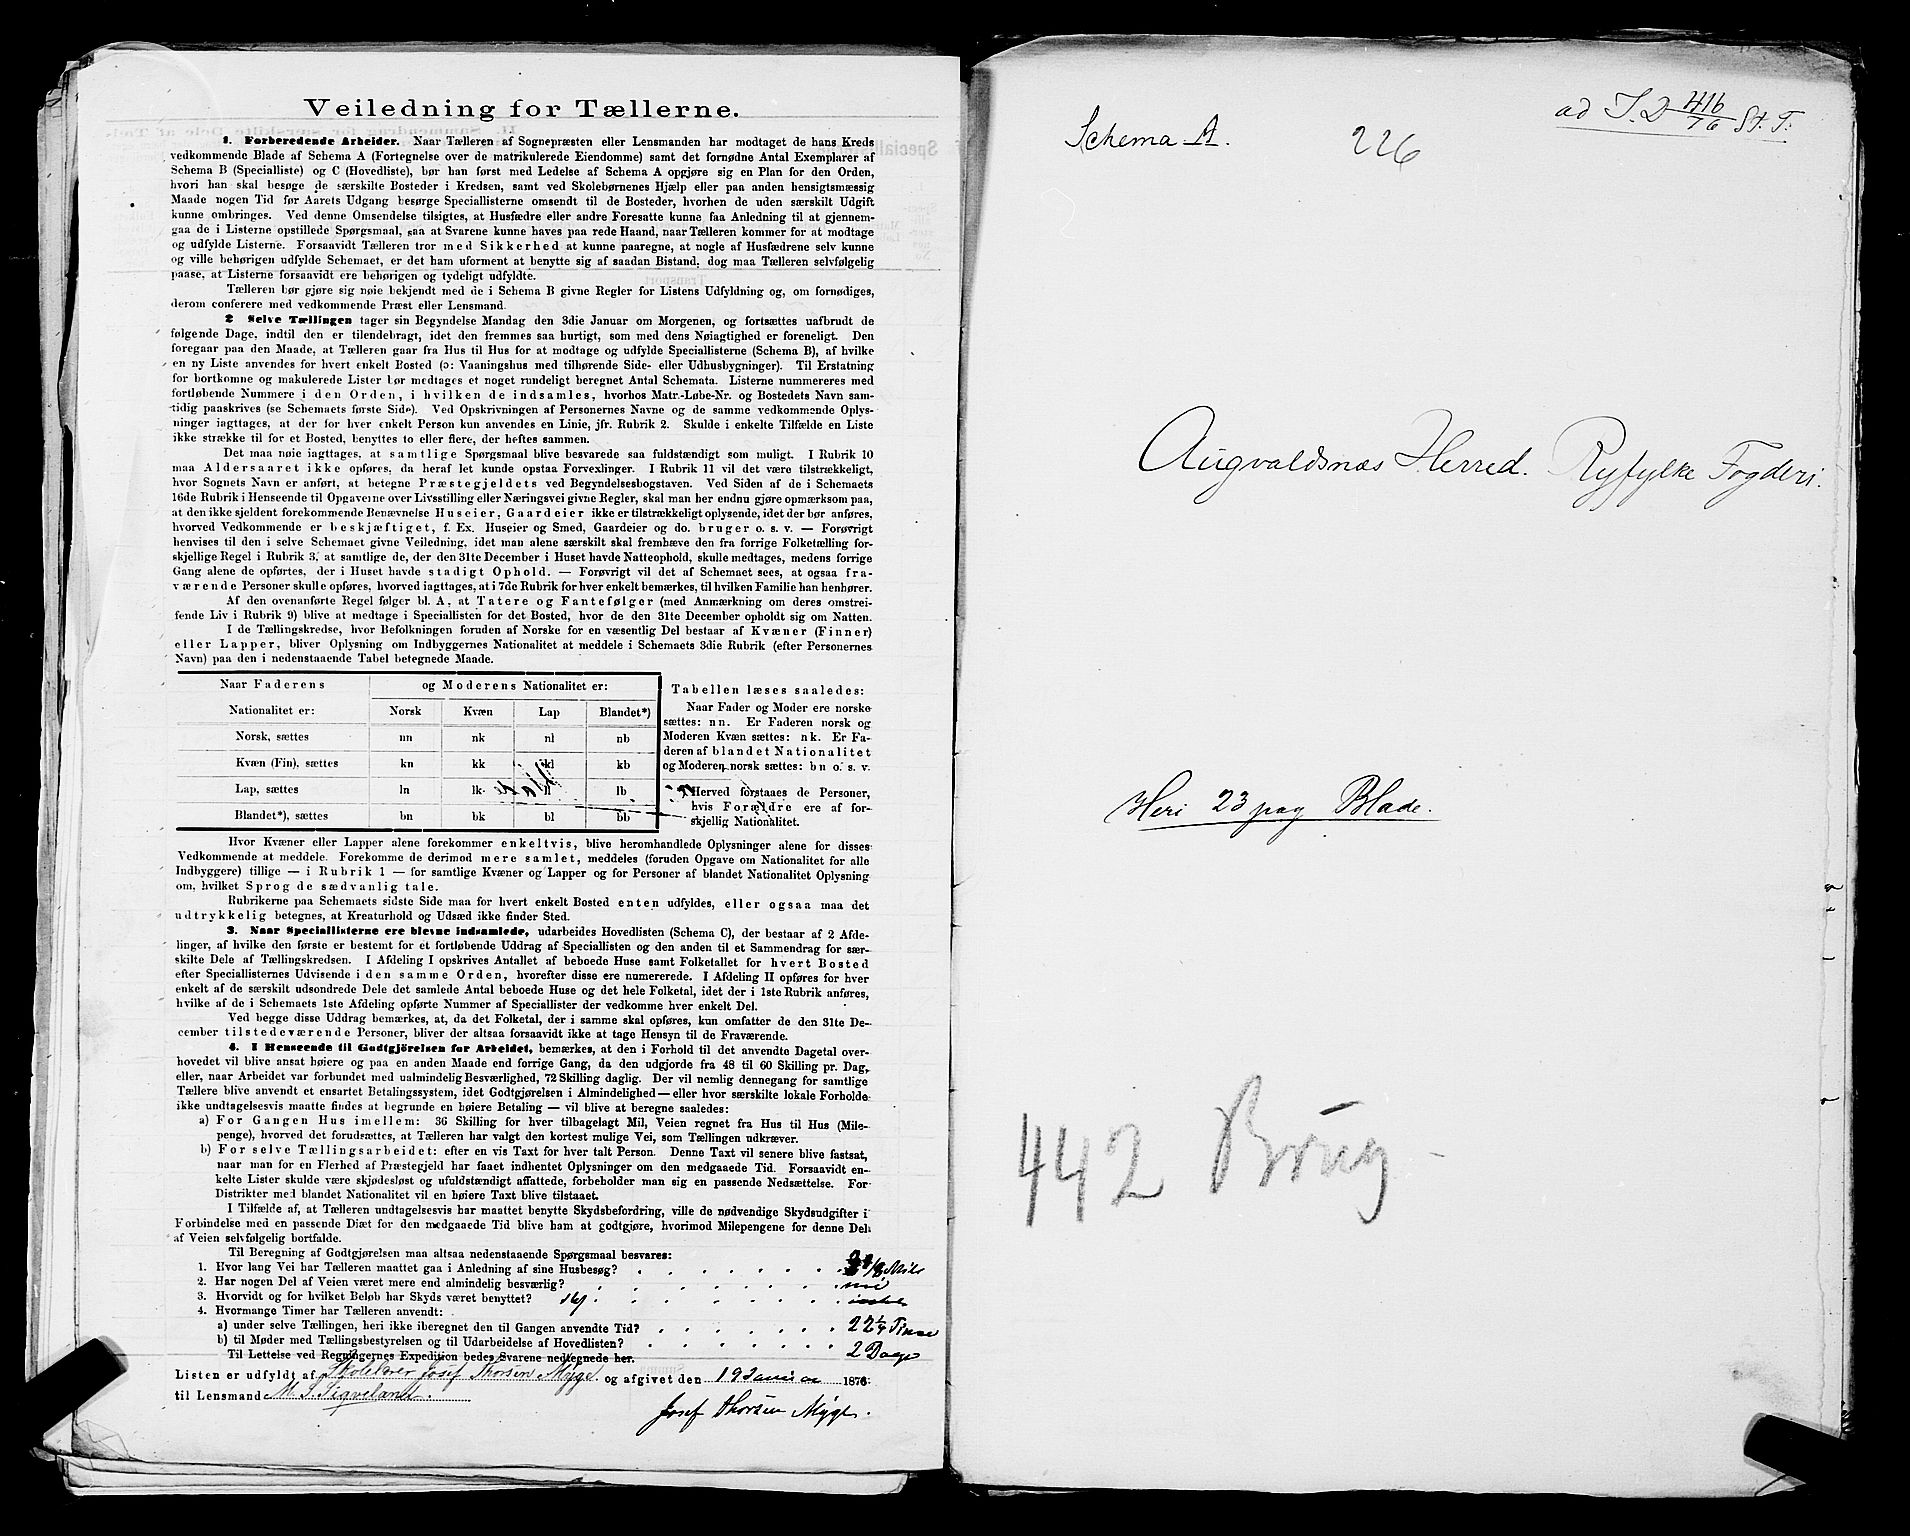 Veiledning for Tællerne.
1. Forberedende Arbeider. Naar Tælleren af Sognepræsten eller Lensmanden har modtaget de hans Kreds
vedkommende Blade af Schema A (Fortegnelse over de matrikulerede Eiendomme) samt det fornødne Antal Exemplarer af
Schema B (Specialliste) og C (Hovedliste), bør han først med Ledelse af Schema A opgjøre sig en Plan for den Orden,
hvori han skal besøge de særskilte Bosteder i Kredsen, samt ved Skolebørnenes Hjælp eller paa anden hensigtsmæssig
Maade nogen Tid før Aarets Udgang besørge Speciallisterne omsendt til de Bosteder, hvorhen de uden særskilt Udgift
kunne ombringes. Ved denne Omsendelse tilsigtes, at Husfædre eller andre Foresatte kunne faa Anledning til at gjennem-
gaa de i Listerne opstillede Spørgsmaal, saa at Svarene kunne haves paa rede Haand, naar Tælleren kommer for at modtage
og udfylde Listerne. Forsaavidt Tælleren tror med Sikkerhed at kunne paaregne, at nogle af Husfædrene selv kunne
og ville behørigen udfylde Schemaet, er det ham uforment at benytte sig af saadan Bistand, dog maa Tælleren selvfølgelig
paase, at Listerne forsaavidt ere behørigen og tydeligt udfyldte.
Tælleren bør gjøre sig nøie bekjendt med de i Schema B givne Regler for Listens Udfyldning og, om fornødiges,
derom conferere med vedkommende Præst eller Lensmand.
2 Selve Tællingen tager sin Begyndelse Mandag den 3die Januar om Morgenen, og fortsættes uafbrudt de
følgende Dage, indtil den er tilendebragt, idet den fremmes saa hurtigt, som med dens Nøiagtighed er foreneligt. Den
foregaar paa den Maade, at Tælleren gaar fra Hus til Hus for at modtage og udfylde Speciallisterne (Schema B), af hvilke
en ny Liste anvendes for hvert enkelt Bosted (ɔ: Vaaningshus med tilhørende Side- eller Udhusbygninger). Til Erstatning
for bortkomne og makulerede Lister bør medtages et noget rundeligt beregnet Antal Schemata. Listerne nummereres med
fortløbende Nummere i den Orden, i hvilken de indsamles, hvorhos Matr.-Løbe-Nr. og Bostedets Navn sam-
tidig paaskrives (se Schemaets første Side). Ved Opskrivningen af Personernes Navne og de samme vedkommende Oplys-
ninger iagttages, at der for hver enkelt Person kun anvendes en Linie, jfr. Rubrik 2. Skulde i enkelte Tilfælde en Liste
ikke strække til for et Bosted, benyttes to eller flere, der heftes sammen.
Det maa nøie iagttages, at samtlige Spørgsmaal blive besvarede saa fuldstændigt som muligt. I Rubrik 10
maa Aldersaaret ikke opføres, da heraf let kunde opstaa Forvexlinger. I Rubrik 11 vil det være tilstrækkeligt,
hvor Sognets Navn er anført, at betegne Præstegjeldets ved Begyndelsesbogstaven. Ved Siden af de i Schemaets
16de Rubrik i Henseende til Opgaverne over Livsstilling eller Næringsvei givne Regler, skal man her endnu gjøre opmærksom paa,
at den ikke sjeldent forekommende Benævnelse Huseier, Gaardeier ikke er tilstrækkeligt oplysende, idet der bør anføres,
hvorved Vedkommende er beskjæftiget, f. Ex. Huseier og Smed, Gaardeier og do. bruger o. s. v. — Forøvrigt
henvises til den i selve Schemaet givne Veiledning, idet man alene særskilt skal fremhæve den fra forrige Folketælling for-
skjellige Regel i Rubrik 3, at samtlige de, der den 31te December i Huset havde Natteophold, skulle medtages, medens forrige
Gang alene de opførtes, der i Huset havde stadigt Ophold. — Forøvrigt vil det af Schemaet sees, at ogsaa fra-
værende Personer skulle opføres, hvorved iagttages, at i 7de Rubrik for hver enkelt bemærkes, til hvilken Familie han henhører.
Af den ovenanførte Regel følger bl. A. at Tatere og Fantefølger (med Anmærkning om deres omstrei-
fende Liv i Rubrik 9) blive at medtage i Speciallisten for det Bosted, hvor de den 31te December opholdt sig om Natten.
I de Tællingskredse, hvor Befolkningen foruden af Norske for en væsentlig Del bestaar af Kvæner (Finner)
eller Lapper, bliver Oplysning om Indbyggernes Nationalitet at meddele i Schemaets 3die Rubrik (efter Personernes
Navn) paa den i nedenstaaende Tabel betegnede Maade.
Naar Faderens og Moderens Nationalitet er:
Nationalitet er: Norsk Kvæn Lap Blandet*)
Norsk, sættes nn nk nl nb
Kvæn (Fin), sættes kn kk kl kb
Lap, sættes ln lk ll lb
Blandet*), sættes bn bk bl bb
Tabellen læses saaledes:
Naar Fader og Moder ere norske
sættes: nn. Er Faderen norsk og
Moderen Kvæn sættes: nk. Er Fa-
deren af blandet Nationalitet
og Moderen norsk sættes: bn o. s. v.
*) Herved forstaaes de Personer,
hvis Forældre ere af for-
skjellig Nationalitet.
Hvor Kvæner eller Lapper alene forekommer enkeltvis, blive heromhandlede Oplysninger alene for disses
Vedkommende at meddele. Forekomme de derimod mere samlet, meddeles (foruden Opgave om Nationalitet for alle
Indbyggere) tillige — i Rubrik 1 — for samtlige Kvæner og Lapper og for Personer af blandet Nationalitet Oplysning
om, hvilket Sprog de sædvanlig tale.
Rubrikerne paa Schemaets sidste Side maa for hvert enkelt Bosted enten udfyldes, eller ogsaa maa det
udtrykkelig betegnes, at Kreaturhold og Udsæd ikke finder Sted.
3. Naar Speciallisterne ere blevne indsamlede, udarbeides Hovedlisten (Schema C), der bestaar af 2 Afde-
linger, af hvilke den første er bestemt for et fortløbende Uddrag af Speciallisten og den anden til et Sammendrag for sær-
skilte Dele af Tællingskredsen. I Afdeling I opskrives Antallet af beboede Huse samt Folketallet for hvert Bosted
efter Speciallisternes Udvisende i den samme Orden, hvorefter disse ere numererede. I Afdeling II opføres for hver
enkelt af de særskilt udsondrede Dele det samlede Antal beboede Huse og det hele Folketal, idet der i 1ste Rubrik anføres,
hvilke af de i Schemaets 1ste Afdeling opførte Nummer af Speciallister der vedkomme hver enkelt Del.
Ved begge disse Uddrag bemærkes, at, da det Folketal, der i samme skal opføres, kun omfatter de den 31te De-
cember tilstedeværende Personer, bliver der altsaa forsaavidt ikke at tage Hensyn til de Fraværende.
4. I Henseende til Godtgjörelsen for Arbeidet, bemærkes, at den i Forhold til det anvendte Dagetal over-
hovedet vil blive ansat høiere og paa en anden Maade end forrige Gang, da den udgjorde fra 48 til 60 Skilling pr. Dag,
eller, naar Arbeidet var forbundet med ualmindelig Besværlighed, 72 Skilling daglig. Der vil nemlig dennegang for samtlige
Tællere blive anvendt et ensartet Betalingssystem, idet Godtgjørelsen i Almindelighed — eller hvor særskilte lokale Forholde
ikke undtagelsesvis maatte findes at begrunde en høiere Betaling — vil blive at beregne saaledes:
a) For Gangen Hus imellem: 36 Skilling for hver tilbagelagt Mil, Veien regnet fra Hus til Hus (Mile-
penge), hvorved det forudsættes, at Tælleren har valgt den kortest mulige Vei, som Tællingen udkræver.
b) For selve Tællingsarbeidet: efter en vis Taxt for hver talt Person. Denne Taxt vil senere blive fastsat,
naar man for en Flerhed af Præstegjeld har faaet indhentet Oplysninger om den medgaaede Tid. Forsaavidt en-
kelte Lister skulde være skjødesløst og ufuldstændigt affattede, forbeholder man sig en passende Nedsættelse. For
Distrikter med blandet Nationalitet vil en høiere Taxt blive tilstaaet.
I Tilfælde af, at Tælleren undtagelsesvis har maattet benytte Skydsbefordring, ville de nødvendige Skydsudgifter i
Forbindelse med en passende Diæt for den medgaaede Tid blive ham at godtgjøre, hvorimod Milepengene for denne Del
af Veien selvfølgelig bortfalde.
Til Beregning af Godtgjørelsen maa altsaa nedenstaaende Spørgsmaal besvares:
1. Hvor lang Vei har Tælleren maattet gaa i Anledning af sine Husbesøg? 1/8 Mile
2. Har nogen Del af Veien været mere end almindelig besværlig? nei
3. Hvorvidt og for hvilket Beløb har Skyds været benyttet?
4. Hvormange Timer har Tælleren anvendt:
a) under selve Tællingen, heri ikke iberegnet den til Gangen anvendte Tid? 22 1/4 Time
b) til Møder med Tællingsbestyrelsen og til Udarbeidelse af Hovedlisten? 2 Dage
Til Lettelse ved Regningernes Expedition bedes Svarene nedtegnede her.
Listen er udfyldt af Skolelærer Josef Thorsen Myge og afgivet den 19 Januar 1876
til Lensmand M. S. Sigveland.
Josef Thorsen Myge.
ad I. D 416/76 St. T.
Schema A. 226
Augvaldsnæs Herred. Ryfylke Fogderi.
Heri 23 pag Blade.
442 Brug